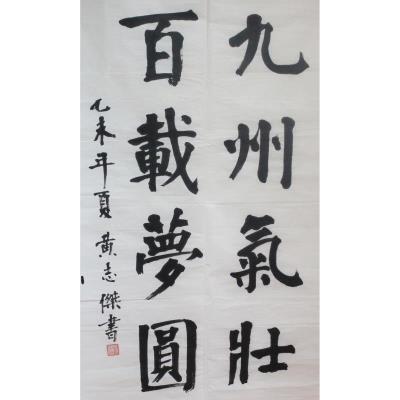 九州氣壯
百載夢圓
乙未年夏黄志傑書